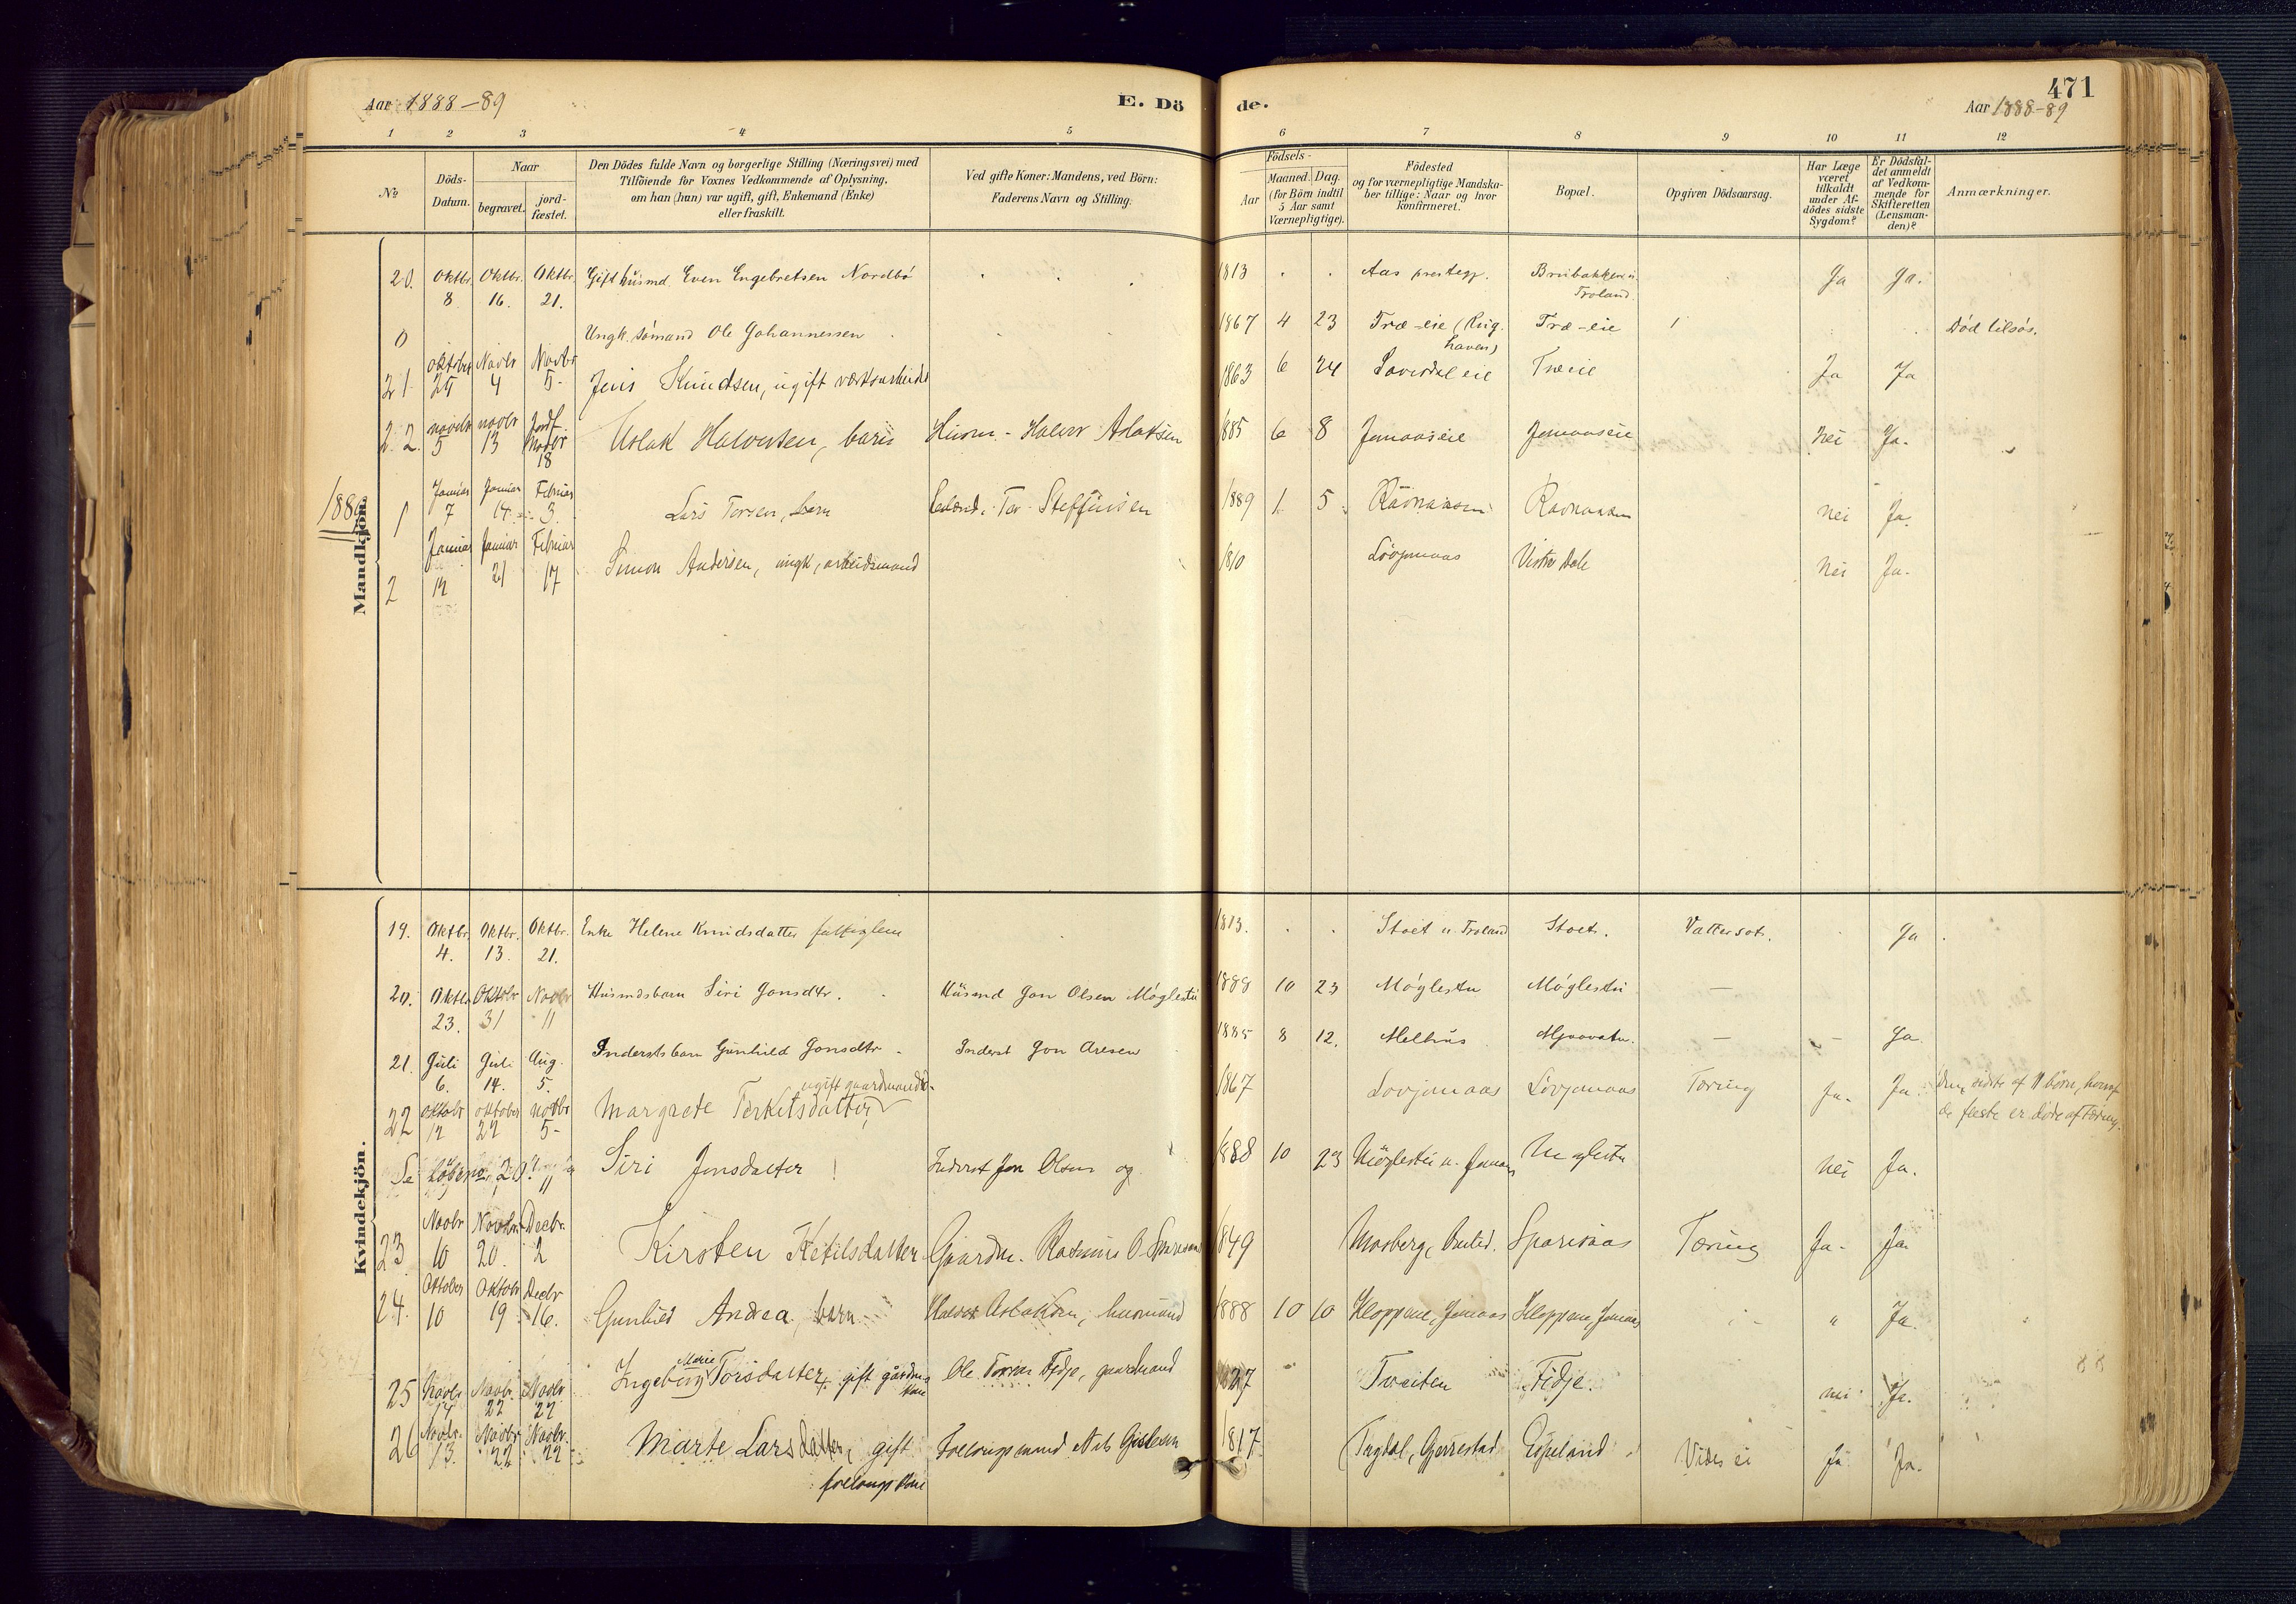 471
Aar 1888-89
E. Dö
de.
Aar 1888-89
1 2 3 4 5 6 7 8 9 10 11 12
No
Döds-Datum.
Naar
begravet.
jord-fæstet.
Den Dödes fulde Navn og borgerlige Stilling (Næringsvei) med
Tilföiende for Voxnes Vedkommende af Oplysning,
om han (hun) var ugift, gift, Enkemand (Enke)
eller fraskilt.
Ved gifte Koner: Mandens, ved Börn:
Faderens Navn og Stilling.
Födsels-
Aar
Maaned. Dag.
(for Börn indtil
5 Aar samt
Værnepligtige).
Födested
og for værnepligtige Mandska-
ber tillige: Naar og hvor
konfirmeret.
Bopæl.
Opgiven Dödsaarsag.
Har Læge
været
tilkaldt
under Af-
dödes sidste
Sygdom?
Er Dödsfal-
det anmeldt
af Vedkom-
mende for
Skifteretten
(Lensman-
den)?
Anmærkninger.
Mandkjön.
20. Oktbr. 8. Oktbr. 16. Oktbr. 21. Gift husmd. Even Engebretsen Nordbö 1813 Aas prestegj. Brubakken u. Troland. Ja Ja.
0 Ungk. sömand Ole Johannessen 1867 4 23 Træ-eie (Rughaven) Træ-eie Död tilsös.
21 oktober 25 Novbr 4 Novbr 5- Jens Knudsen, ugift værksarbeider 1863 6 24 Træeie Ja Ja
22. novbr 5 novbr 13 Jordf. Novbr 18 Aslak Halvorsen, barn Husm- Halvor Aslaksen 1885 6 8 Jomaaseie Jomaaseie nei Ja.
1889
1 Januar 7 Januar 14 Februar 3. Lars Torsen, barn Tor Steffensen 1889 1 5 Ravnaasen Ravnaasen nei Ja.
2 Januar 12 Januar 21 Februar 17 Simon Andersen, ungk, arbeidsmand 1810 Lövjomaas Vestre Dale Nei Ja.
Kvindekjön.
19. Oktbr. 4. Oktbr. 13. Oktbr. 21. Enke Helene Knudsdatter fattiglem 1813. Stoet u. Troland Stoet. Vattersot. Ja
20. Oktbr. 23. Oktobr 31 Novbr 11 Husmdsbarn Siri Jonsdtr. Husmd Jon Olsen Möglestu 1888 10 23 Möglestu Möglestu —
21. Juli 6. Juli 14. Aug. 5. Inderstsbarn Gunhild Jonsdtr Inderst Jon Aresen 1885 8 12. Melhus — - Ja
22 oktobr 12 oktober 27 novbr 5- Margrete Terkelsdatter, ugift gaardmandsd. 1867 Lövjomaas Lövjomaas Tæring Ja. Ja. Den sidste af 11 börn, hvoraf
de fleste er döde af Tæring.
Se löbeno 20. Siri Jonsdatter Inderst Jon Olsen og 1888 10 23 Möglestu u. Jomaas Möglestu nei Ja.
23. Novbr 10 Novbr 20. Decbr. 2 Kirsten Ketilsdatter Gaardm. Rasmus O. 1849 Mosberg, Sparsaas Tæring Ja. Ja.
24. Oktober 10 Oktobr 19 Decbr 16. Gunhild Andrea, barn Halvor Aslaksen, husmand 1888 10 10 Kloppene, Jomaas Kloppene, Jomaas Ja.
25 Novbr. 14 Novbr. 22 Novbr 22 Ingeborg Marie Torsdatter, gift gårdm. kone Ole Torsen Fidje, gaardmand 1827 Tveiten Fidje. nei Ja.
26 Novbr. 13. Novbr 22 Novbr. 22 Marte Larsdatter, gift
foelaugs kone Foelaugsmand Nils Gislesen 1817 Gjerrestad Espeland Vides ei Ja Ja.